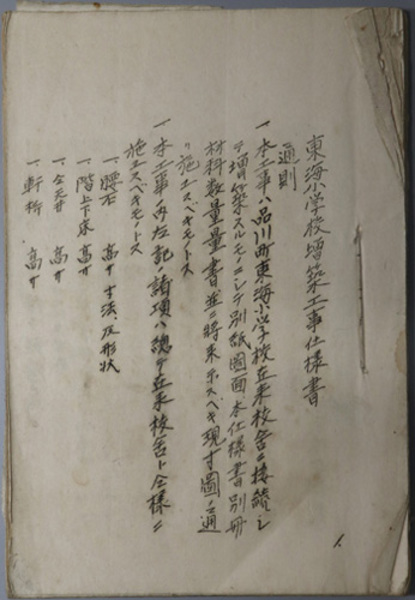 東海小学校増築工事仕様書
通則
一、本工事ハ品川町東海小学校在来校舎ニ接続シ
テ増築スルモノニシテ別紙図面、本仕様書別冊
材料数量書並ニ将来示スベキ現寸圖ノ通
リ施工スベキモノトス
一、本工事ノ内左記ノ諸項ハ總テ在来校舎ト仝様ニ
施工スベキモノトス
一、腰石 高サ寸法、及形状
一、階上下床 高サ
一、仝天井 高サ
一、軒桁 高サ
1.